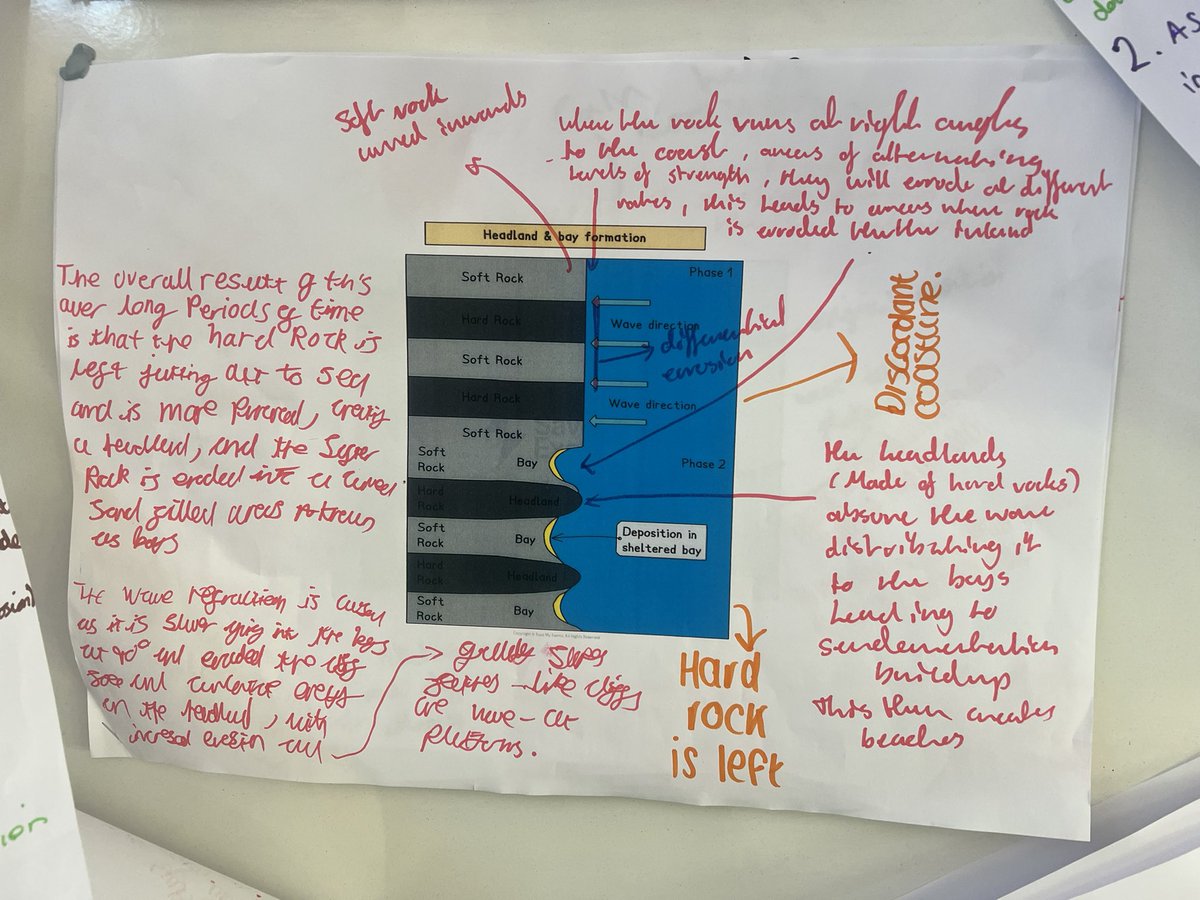 Soft rock
curved inwards
where the rock runs at right angles
to the coast, areas of alternating
levels of strength, they will erode at different
rates, this leads to areas where rock
is eroded further inland
Headland & bay formation
Soft Rock
Phase 1
Hard Rock
Wave direction
differential
erosion
Soft Rock
Hard Rock
Wave direction
Soft Rock
Phase 2
Soft
Rock
Bay
Hard
Rock
Headland
Soft
Rock
Bay
Deposition in
sheltered bay
Hard
Rock
Headland
Soft
Rock
Bay
The overall result of this
over long Periods of time
is that the hard Rock is
left jutting out to sea
and is more
a headland, and the
Rock is eroded into a curved
Sand filled areas
as bays
The wave refraction is
as it is slower going into the bays
at 90° and eroded the cliff
on the headland, with
erosion
like cliffs
wave-cut
platforms.
Discordant
coastline.
the headlands
(Made of hard rocks)
the wave
it
to the bays
leading to
buildup
this then creates
beaches
Hard
rock
is left
2. AS
in